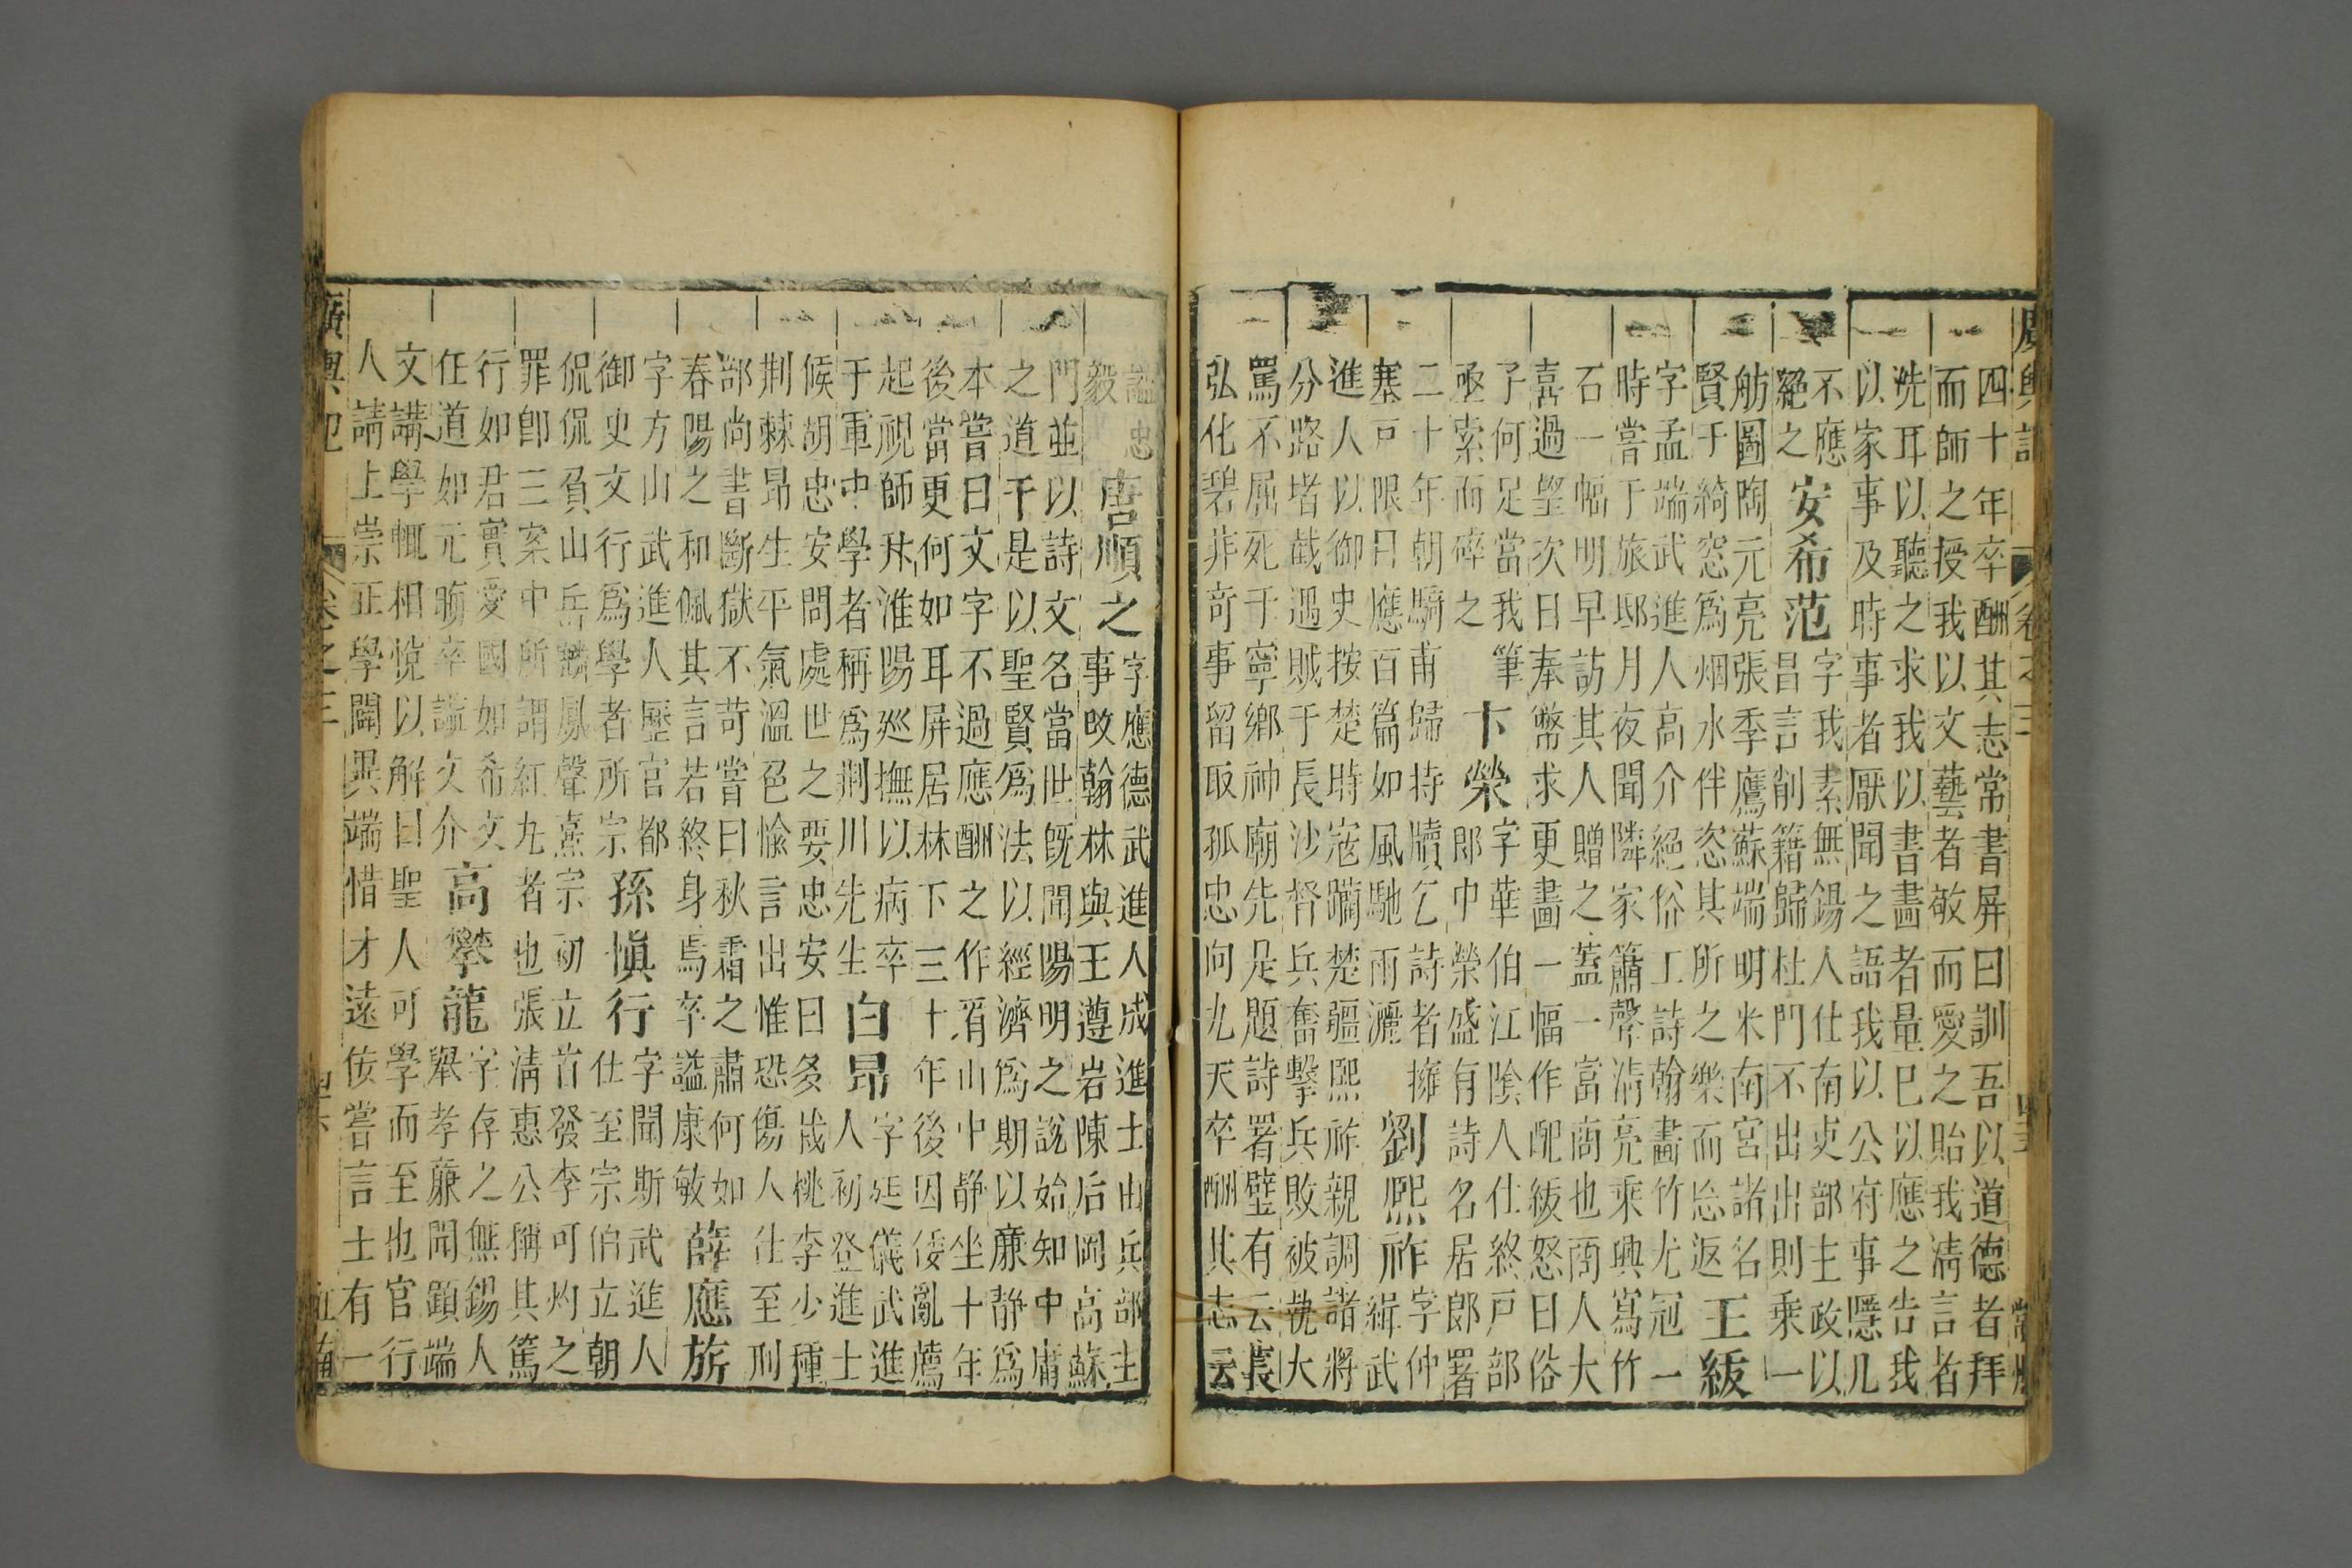 廣輿記 卷之三 常州
四十年卒酬其志常書屏曰訓吾以道德者拜
而師之授我以文藝者敬而愛之貽我清言者
洗耳以聽之求我以書畵者量已以應之告我
以家事及時事者厭聞之語我以公府事隱几
不應
絕之
安希范
字我素無錫人仕南吏部主政以
昌言削籍歸杜門不出出則乘一
舫圖陶元亮張季鷹蘇端明米南宮諸名
賢于綺窓爲烟水伴恣其所之樂而忘返
王紱
字孟端武進人高介絕俗工詩翰畵竹尤冠一
時嘗于旅邸月夜聞隣家簫聲清亮乘興寫竹
石一幅明早訪其人贈之蓋一富商也商人大
喜過望次日奉幣求更畵一幅作配紱怒曰俗
子何足當我筆
亟索而碎之
卞榮
字華伯江陰人仕終戶部
郎中榮盛有詩名居郎署
二十年朝騎甫歸持牘乞詩者擁
塞戸限日應百篇如風馳雨灑
劉熙祚
字仲
緝武
進人以御史按楚時寇躪楚疆熙祚親調諸將
分路堵截遇賊于長沙督兵奮擊兵敗被執大
罵不屈死于寧鄉神廟先是題詩署壁有云萇
弘化碧非奇事留取孤忠向九天卒酬其志云
諡忠
毅
唐順之
字應德武進人成進士由兵部主
事攺翰林與王遵岩陳后岡高蘇
門並以詩文名當世旣聞陽明之說始知中庸
之道于是以聖賢爲法以經濟爲期以亷静爲
本嘗曰文字不過應酬之作㞐山中静坐十年
後當更何如耳屏居林下三十年後因倭亂薦
起視師陞淮陽巡撫以病卒
于軍中學者稱爲荆川先生
白昂
字廷儀武進
人初登進士
候胡忠安問處世之要忠安曰多栽桃李少種
荆棘昂生平氣溫色愉言出惟恐傷人仕至刑
部尚書斷獄不苛嘗曰秋霜之肅何如
春陽之和佩其言若終身焉卒諡康敏
薛應旂
字方山武進人歷官都
御史文行爲學者所宗
孫慎行
字聞斯武進人
仕至宗伯立朝
侃侃負山岳麟鳳聲熹宗初立首發李可灼之
罪卽三案中所謂紅九者也張淸惠公稱其篤
行如君實愛國如希文
任道如元晦卒諡文介
高攀龍
字存之無錫人
舉孝亷聞顧端
文講學輒相悅以解曰聖人可學而至也官行
人請上崇正學闢異端惜才遠佞嘗言士有一
廣輿記 卷之三 江南